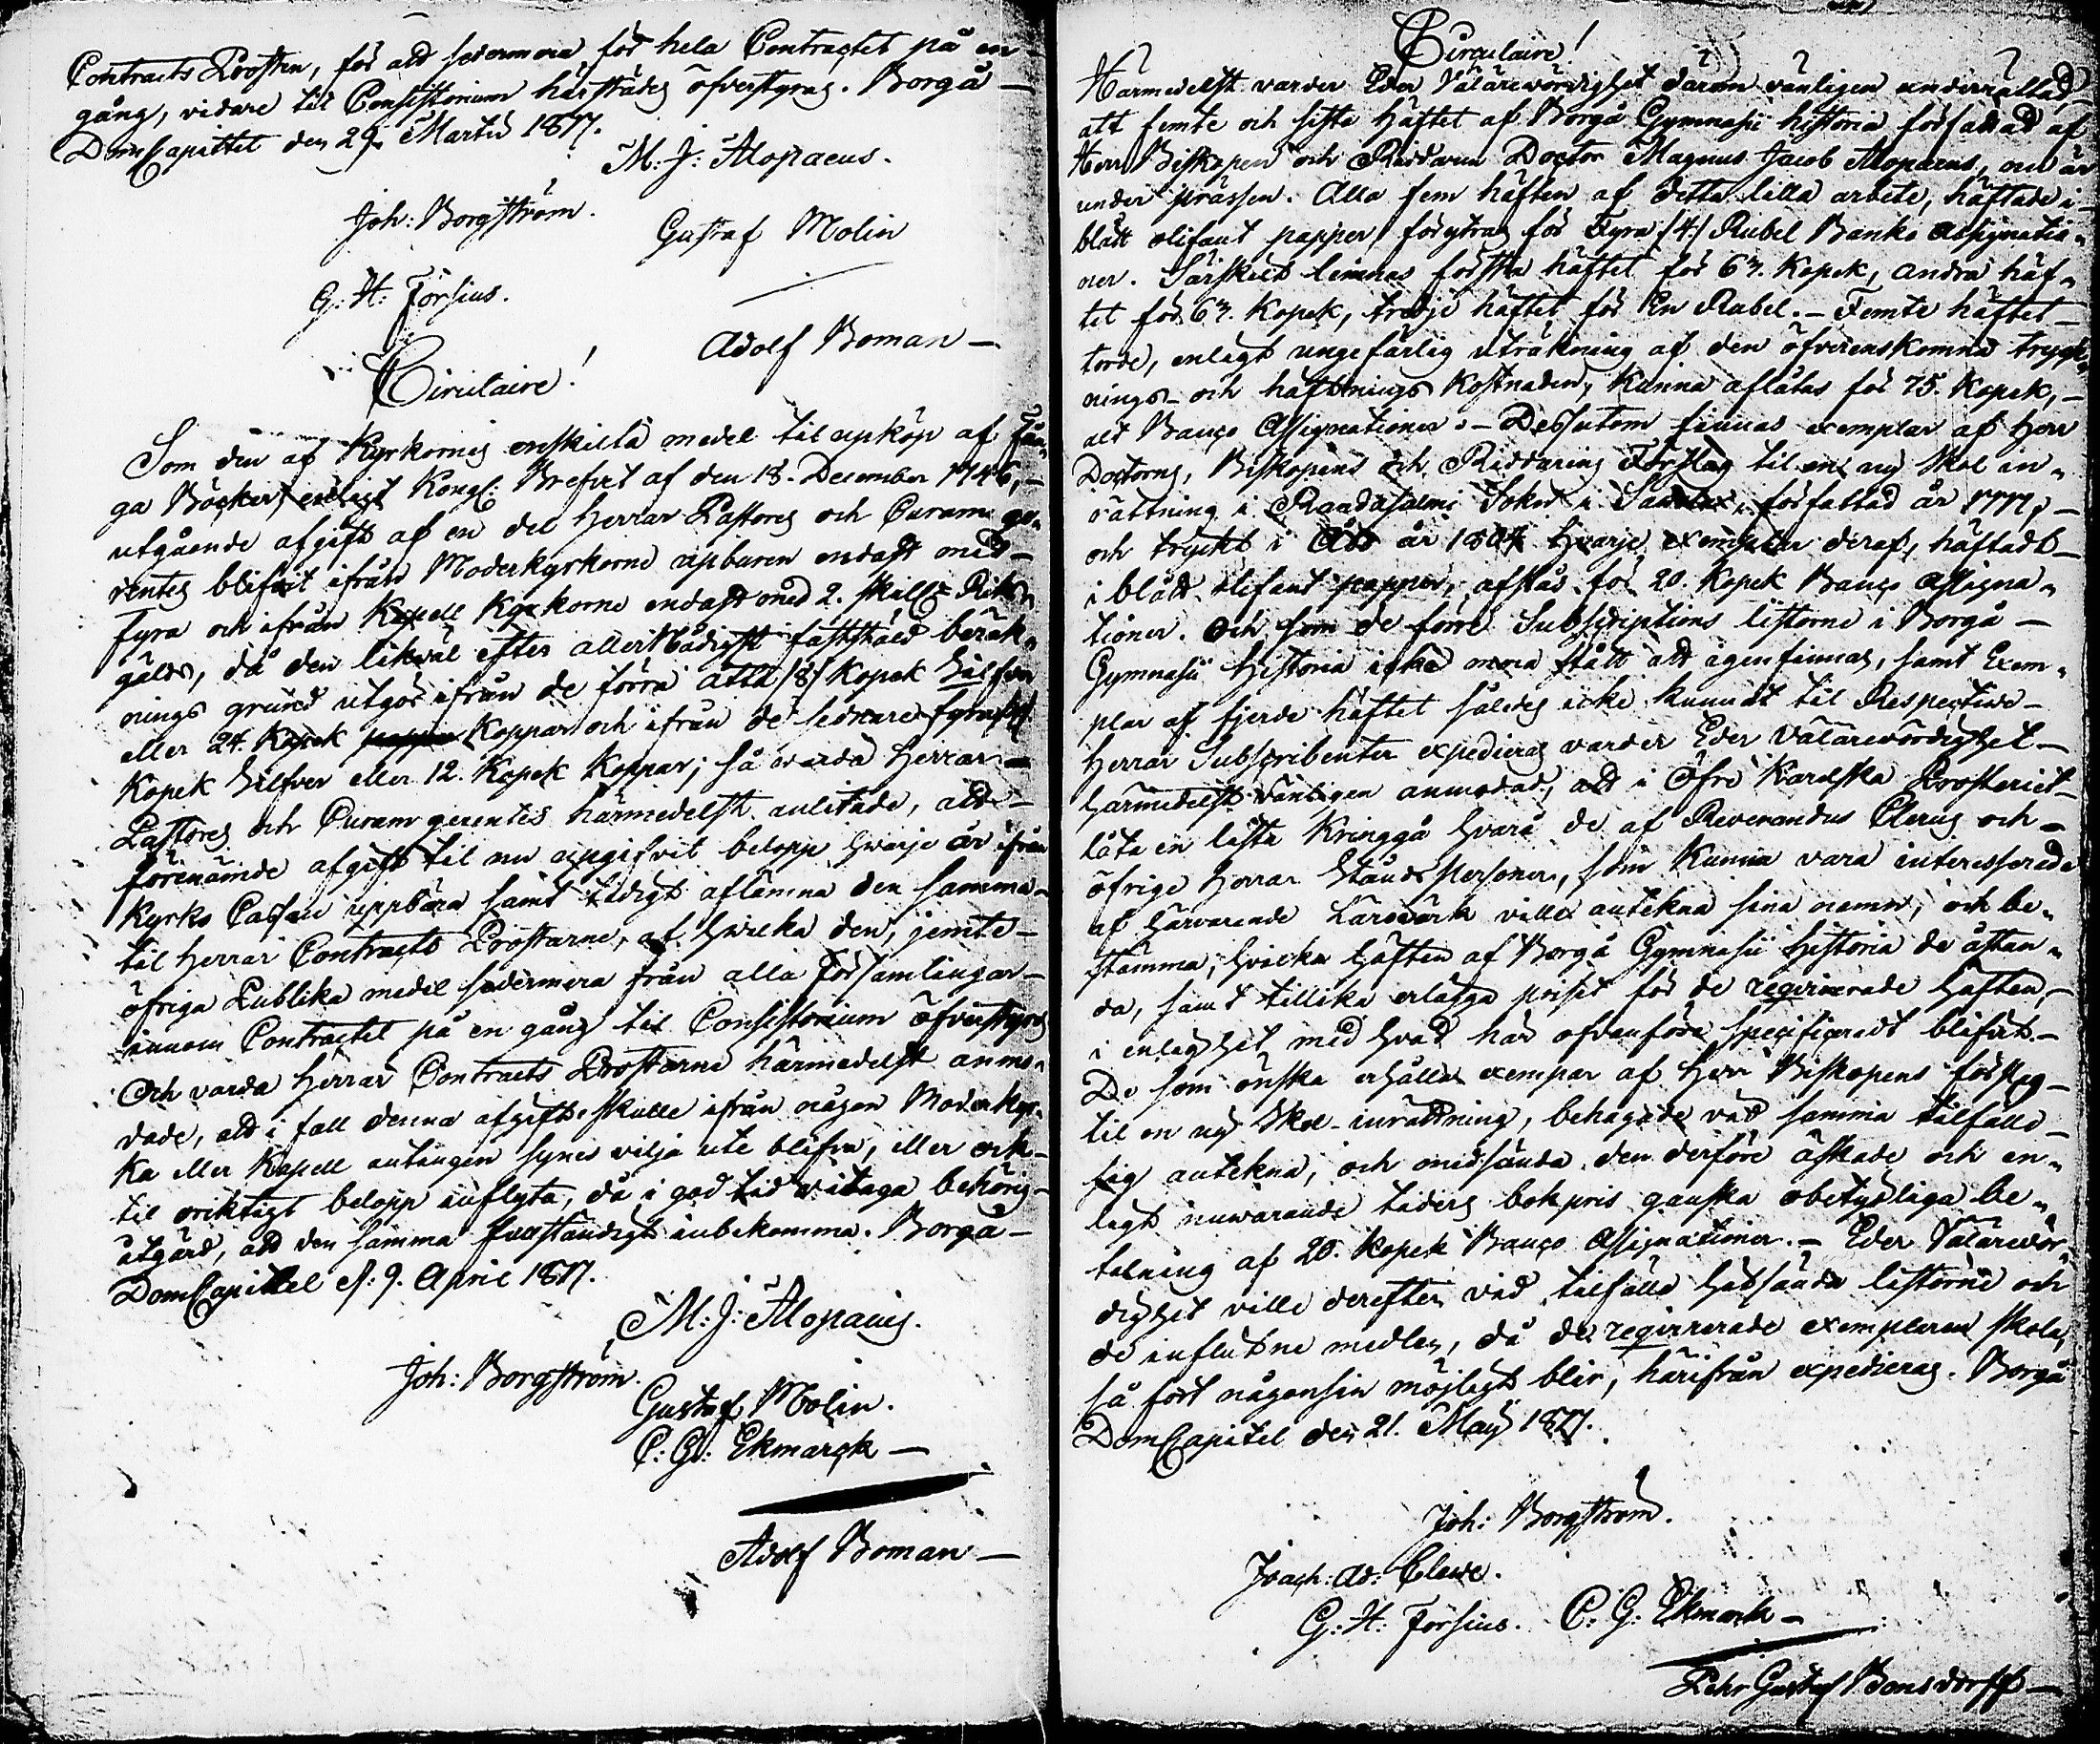 Contracts Prosten, för att sedermera för hela Contractet på en
gång, vidare til Consistorium härstädes öfverstyras. Borgå
DomCapittel den 29. Martii 1817.
M: J: Alopaeus.
Joh: Borgström.
Gustaf Molin
G: H: Forsius.
Adolf Boman
Circulaire!
Som den af Kyrkornes enskilta medel til upköp af Fån-
ga Böcker enligt Kongl: Brefvet af den 18. December 1746,
utgående afgift af en del Herrar Pastores och Curam ge-
rentes blifvit ifrån Moderkyrkorne upburen endast med
fyra och ifrån Kapell Kyrkorne endast med 2. skill: Riks-
gälds, då den likväl efter allerNådigst fastståld beräk-
nings grund utgör ifrån de förra åtta /8/ Kopek Silfver
eller 24. Kopek Koppar och ifrån de sednare fyra /4/
Kopek Silfver eller 12. Kopek Koppar; så warda Herrar
Pastores och Curam gerentes härmedelst anlitade, att
förenämde afgift til nu upgifvit belopp hwarje år ifrån
Kyrko Cassan uppbära samt tidigt aflämna den samma
til Herrar Contracts Prostarne, af hwilka den, jemte
öfriga Publika medel sedermera från alla Församlingar
innom Contractet på en gång til Consistorium öfverstyres
Och varda Herrar Contracts Prostarne härmedelst anmo-
dade, att i fall denna afgift skulle ifrån någon Moderkyr-
ka eller Kapell antingen synes vilja ute blifva, eller ock
til oriktigt belopp inflyta, då i god tid vidtaga behörig
åtgärd, att den samma fullständigt inbekomma. Borgå
DomCapittel d: 9. April 1817.
M: J: Alopaeus.
Joh: Borgström.
Gustaf Molin.
C: G: Ekmarck
Adolf Boman
Circulaire!
Härmedelst varder Eder Välärevördighet därom vänligen underrättad,
att femte och sista häftet af Borgå Gymnasii historia författad af
Herr Biskopen och Riddaren Doctor Magnus Jacob Alopaeus, nu är
under prässen. Alla fem häften af detta lilla arbete, häftade i
blått olifant papper, föryttras för Fyra /4/ Rubel Banko Assignatio-
ner. Särskilt lemnas första häftet för 67. Kopek, andra häf-
tet för 67. Kopek, tredje häftet för En Rubel. Femte häftet
torde, enligt ungefärlig uträkning af den öfverenskomna tryck-
nings- och häftnings kostnaden, kunna aflåtas för 75. Kopek,
alt Banco Assignationer. Dessutom finnas exemplar af Herr
Doctorns, Biskopens och Riddarens Förslag til en ny Skol in-
rättning i Randasalmi Sokn i Savolax, författad år 1777,
och tryckt i Åbo år 1804 hvarje exemplar deraf, häftadt
i blått olifant papper, afstås för 20. Kopek Banco Assigna-
tioner. Och som de förre Subscriptions listorne i Borgå
Gymnasii Historia icke mera stått att igenfinnas, samt Exem-
plar af fjerde häftet således icke kunnat til Respective
Herrar Subscribenter expedieras varder Eder välärevördighet
härmedelst vänligen anmodad, att i Öfre Karelska Prosteriet
låta en lista kringgå hvarå de af Reverendus Clerus och
öfrige Herrar Ståndspersoner, som kunna vara interesserade
af härvarande Lärovärk ville antekna sina namn, och be-
stämma, hvilka häften af Borgå Gymnasii Historia de åstun-
da, samt tillika erlägga priset för de reqvirerade häften,
i enlighet med hvad här ofvanföre specificeradt blifvit.
De som önska erhålla exemplar af Herr Biskopens förslag
til en ny Skol-inrättning, behagade vid samma tilfälle
sig antekna, och medsända den derföre äskade och en-
ligt nuwarande tiders bokpris ganska obetydliga be-
talning af 20. Kopek Banco Assignationer. Eder Välärevör-
dighet ville derefter vid tilfälle hitsända listorne och
de influtne medlen, då de reqvirerade exemplaren skola,
så fort någonsin möjligt blir, härifrån expedieras. Borgå
DomCapitel den 21. Maij 1817.
Joh: Borgström.
Joach: Ad: Cleve.
G: H: Forsius. C: G: Ekmark
Pehr Gustaf Bonsdorff